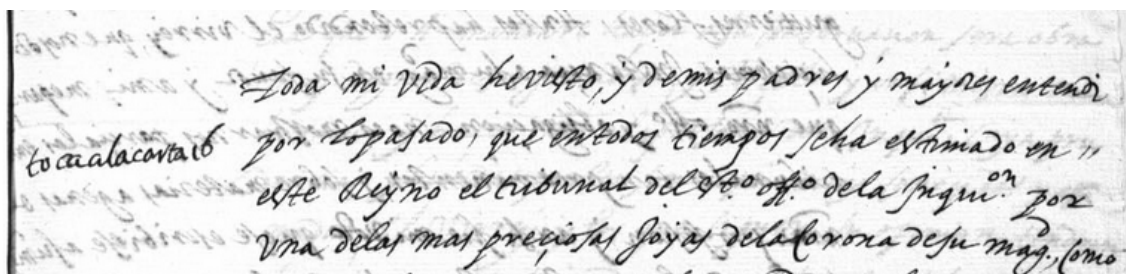 Toda mi vida he visto, y de mis padres y mayores entendi
toca a la carta 16
por lo pasado, que en todos tiempos se ha estimado en
este Reyno el tribunal del sto. offo. de la Inquion. por
una de las mas preciosas Joyas de la Corona de su magd., como